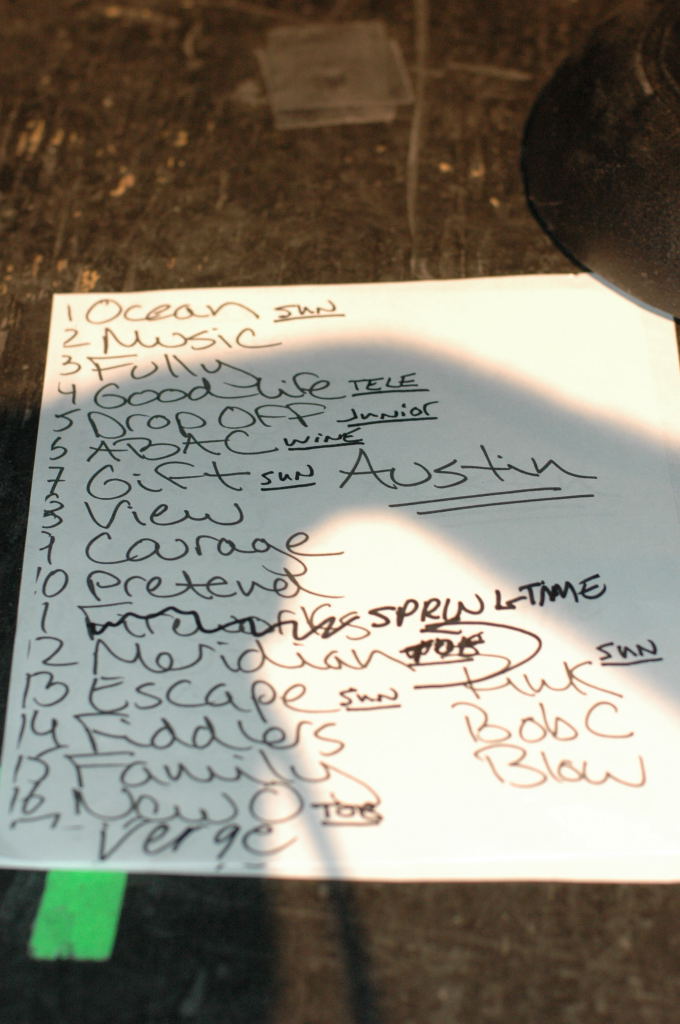 1 Ocean SUN
2 Music
3 Fully
4 Good life TELE
5 Drop OFF Junior
6 ABAC WINE
7 Gift SUN Austin
8 View
9 Courage
10 Pretend
11 Fireworks SPRINGTIME
12 Meridian
13 Escape SUN
14 Fiddlers
15 Family
16 New O TOB
17 Verge
Pink SUN
Bob C
Blow